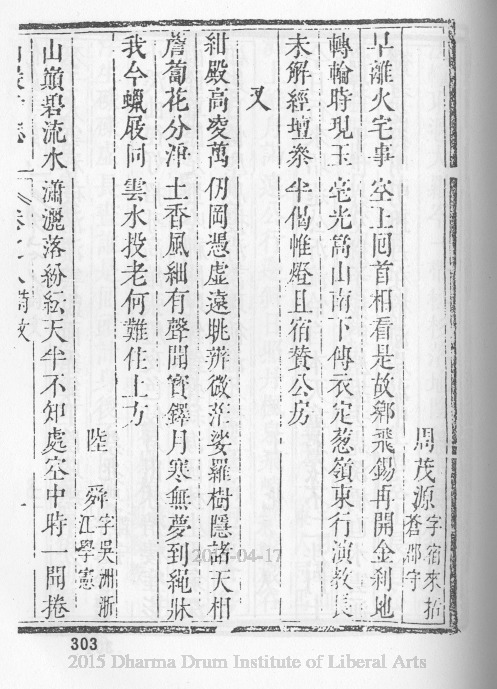 周茂源字宿來括
蒼郡守
早離火宅事空上囘首相看是故鄉飛錫再開金剎地
轉輪時現玉毫光嵩山南下傳衣定葱嶺東行演教長
未解經壇參半偈惟燈且宿贊公房
又
紺殿高凌萬仞岡憑虛遠眺辨微茫娑羅樹隱諸天相
薝蔔花分淨土香風細有聲聞寶鐸月寒無夢到繩牀
我今蠟屐同雲水投老何難住上方
陸舜字吳洲浙
江學憲
山巔碧流水瀟灑落紛紜天半不知處空中時一聞捲
303
2015 Dharma Drum Institute of Liberal Arts